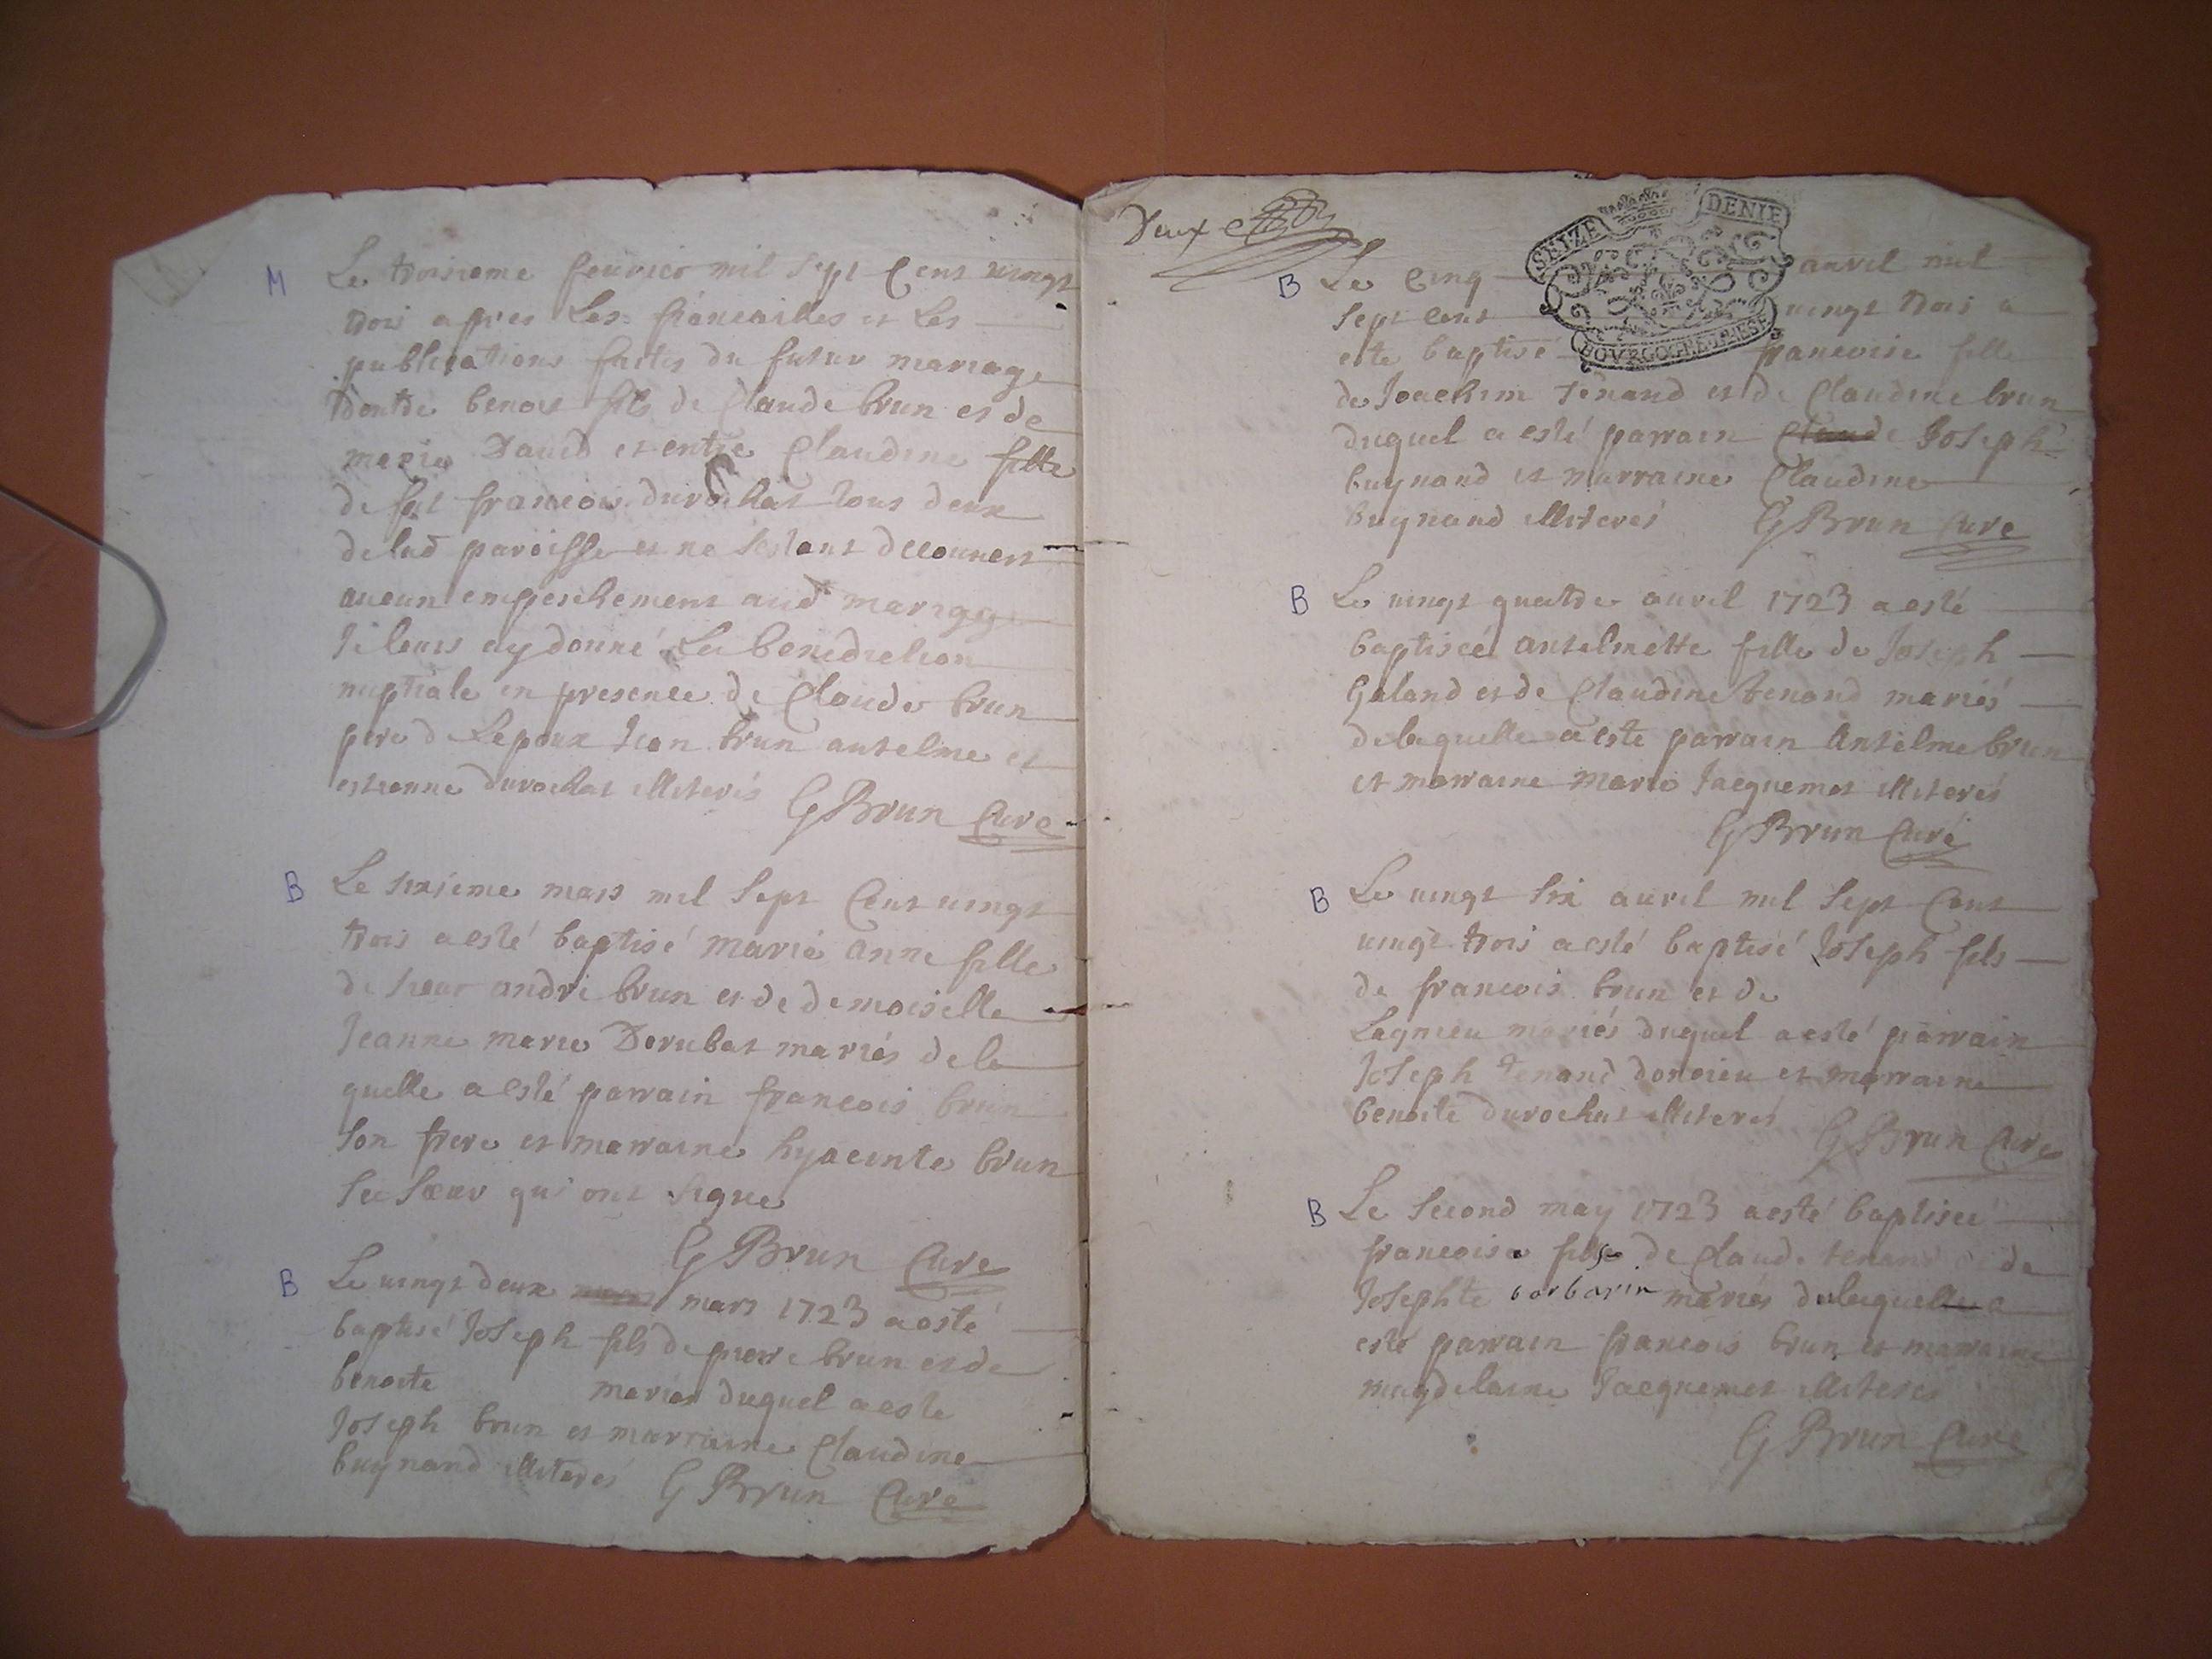 M
Le troisieme feurier mil sept Cens uingt
trois apres Les fiancailles et Les
publications faites du futur mariage
Dentre benoit fils de Claude brun et de
marie Dauid et entre Claudine fille
de fut francois durochat tous deux
de lad paroisse et ne sestant decouuert
aucun empeschement aud mariage
Je leurs ay donné La benediction
nuptiale en presence de Claude brun
pere de Lepoux Jean brun antelme et
estienne durochat illiterés
G Brun Curé
B
Le sixieme mars mil sept Cent uingt
trois a esté baptisé marie anne fille
de sieur andré brun et de demoiselle
Jeanne marie Derubat mariés de la
quelle a esté parrain francois brun
son frere et marraine hyacinte brun
sa sœur qui ont signe
G Brun Curé
B
Le uingt deux mars 1723 a esté
baptisé Joseph fils de pierre brun et de
benoite mariés duquel a este
Joseph brun et marraine Claudine
buynand illiterés G Brun Curé
Deux
SEIZE DENIE
BOVRGOGNE ET BRESSE
B
Le Cinq auril mil
sept cent uingt trois a
este baptisé francoise fille
de Joachim tenand et de Claudine brun
duquel a esté parrain Claude Joseph
buynand et marraine Claudine
buynand illiterés G Brun Curé
B
Le uingt quatre auril 1723 a esté
baptiseé antelmette fille de Joseph
Galand et de Claudine tenand mariés
de laquelle a este parrain Antelme brun
et marraine marie Jacquemet illiterés
G Brun Curé
B
Le uingt six auril mil sept Cent
uingt trois a esté baptisé Joseph fils
de francois brun et de
Lagnieu mariés duquel a esté parrain
Joseph tenand et marraine
benoite durochat illiterés
G Brun Curé
B
Le second may 1723 a esté baptiseé
francoise fille de Claude tenand et de
Josephte barbarin mariés de laquelle a
esté parrain francois brun et marraine
magdelaine Jacquemet illiterés
G Brun Curé